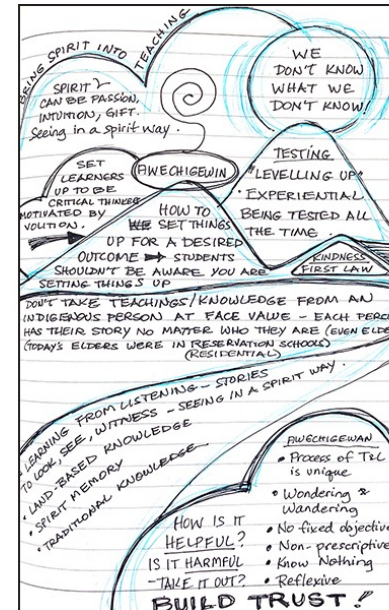 BRING SPIRIT INTO TEACHING
WE
DON'T KNOW
WHAT WE
DON'T KNOW!
SPIRIT
CAN BE PASSION,
INTUITION, GIFT.
Seeing in a spirit way.
SET
LEARNERS
UP TO BE
CRITICAL THINKERS
MOTIVATED BY
VOLITION.
AWECHIGEWIN
TESTING
"LEVELLING UP"
• EXPERIENTIAL
BEING TESTED ALL
THE TIME.
HOW TO
WE SET THINGS
UP FOR A DESIRED
OUTCOME ⇒ STUDENTS
SHOULDN'T BE AWARE YOU ARE
SETTING THINGS UP
KINDNESS
FIRST LAW
DON'T TAKE TEACHINGS/KNOWLEDGE FROM AN
INDIGENOUS PERSON AT FACE VALUE - EACH PERS
HAS THEIR STORY NO MATTER WHO THEY ARE (EVEN ELDE
(TODAY'S ELDERS WERE IN RESERVATION SCHOOLS)
(RESIDENTIAL)
• LEARNING FROM LISTENING - STORIES
TO LOOK, SEE, WITNESS - SEEING IN A SPIRIT WAY.
• LAND-BASED KNOWLEDGE
• SPIRIT MEMORY
• TRADITIONAL KNOWLEDGE
HOW IS IT
HELPFUL?
IS IT HARMFUL
- TAKE IT OUT?
AWECHIGEWAN
• Process of T&L
is unique
• Wondering &
Wandering
• No fixed objective
• Non-prescriptive
• Know Nothing
• Reflexive
BUILD TRUST!